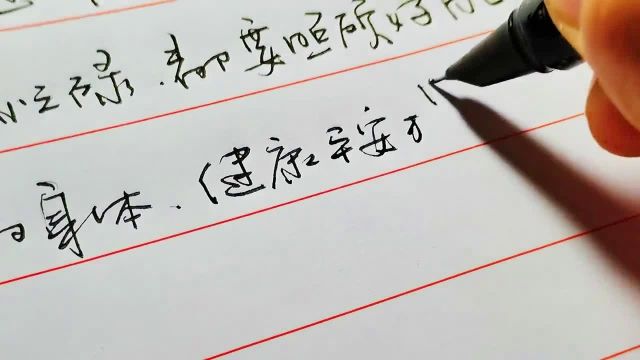 忙碌.都要照顾好
身体.健康平安才